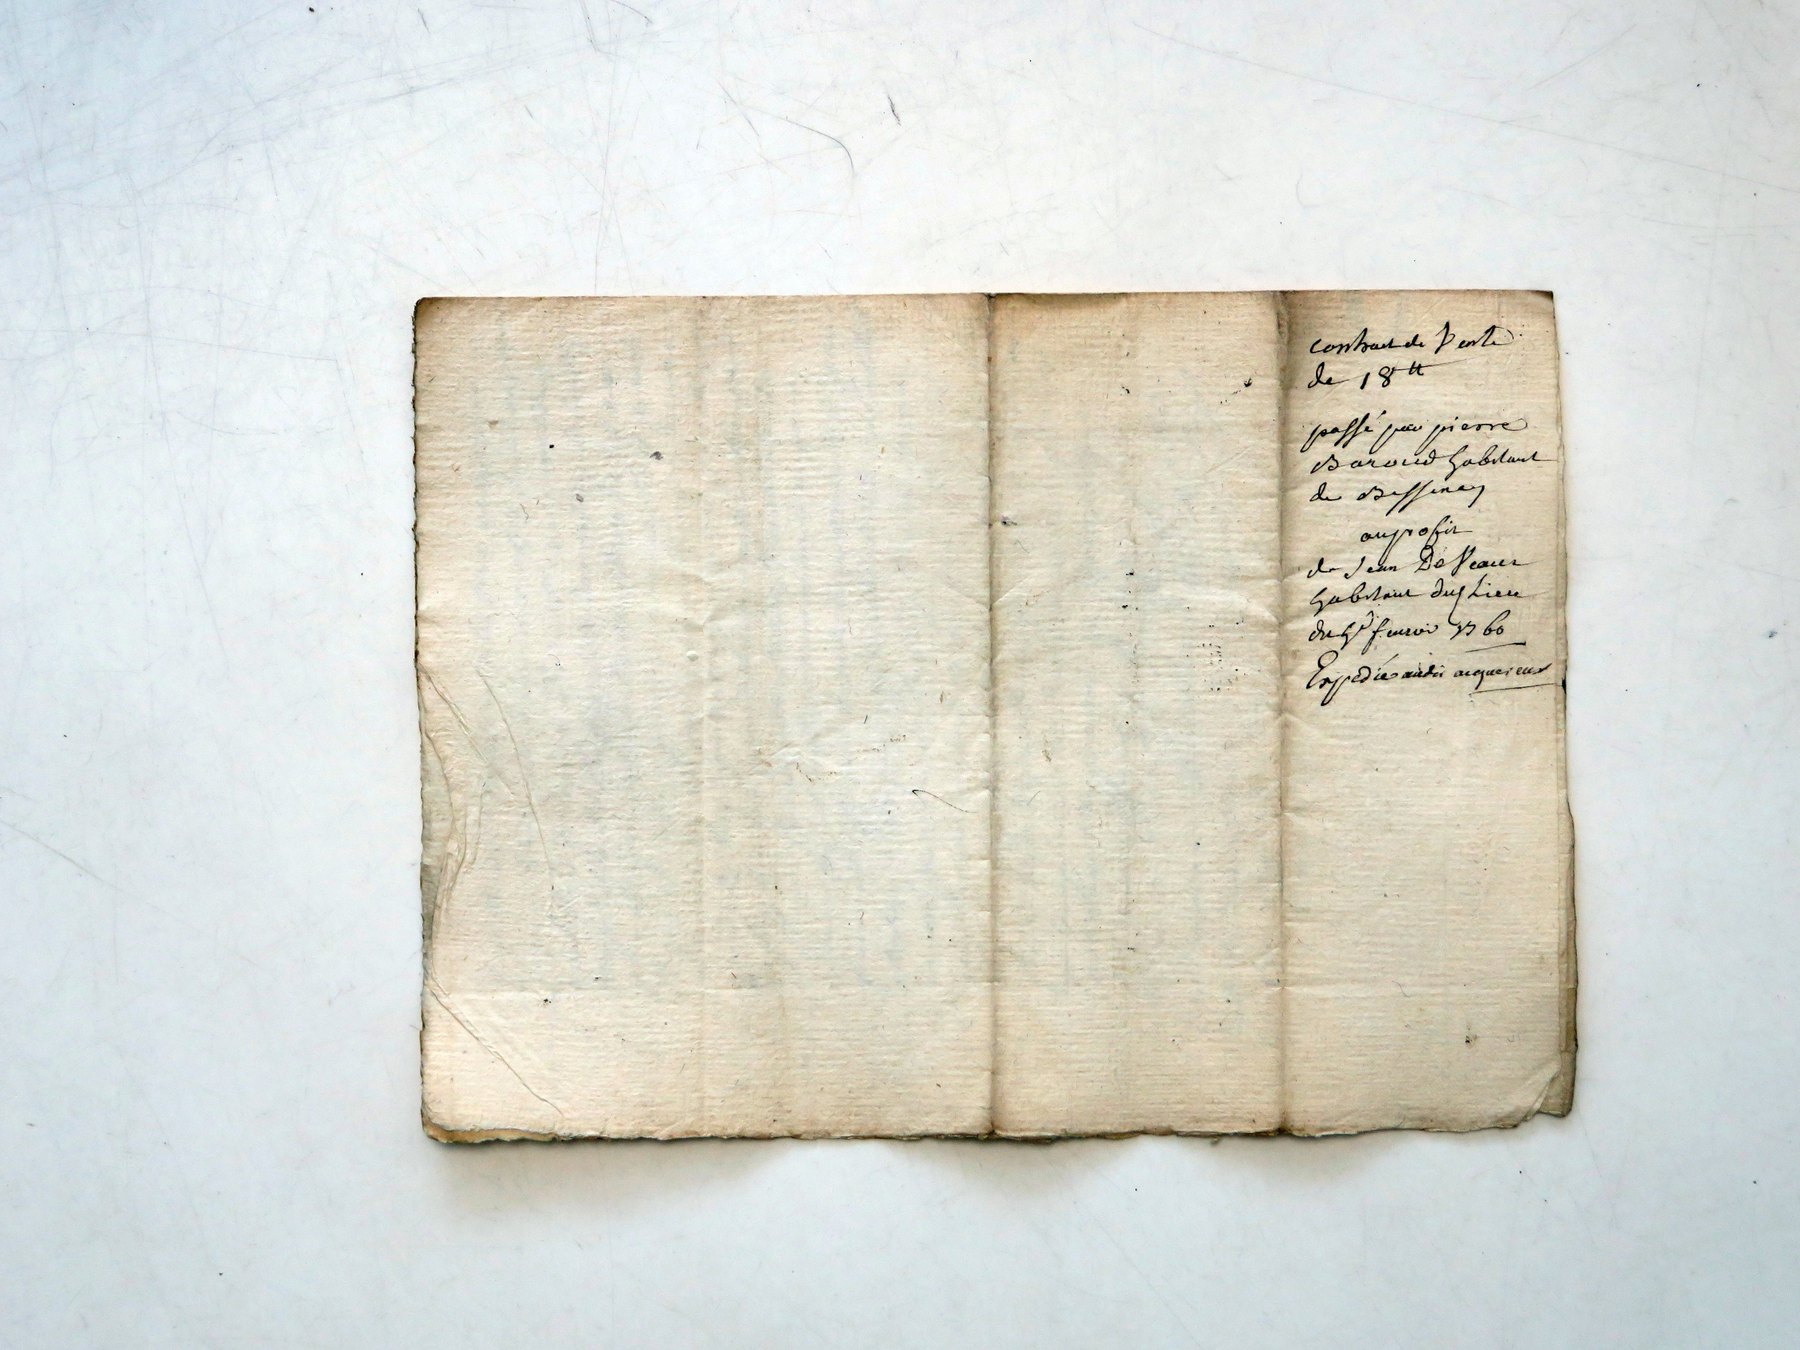 contract de Vente
de 18 ₶
passé par pierre
Baroud habitant
de Bessenay
au profit
de Jean De Veaux
habitant dud Lieu
du fevrier 1760
Expedié audit acquereur